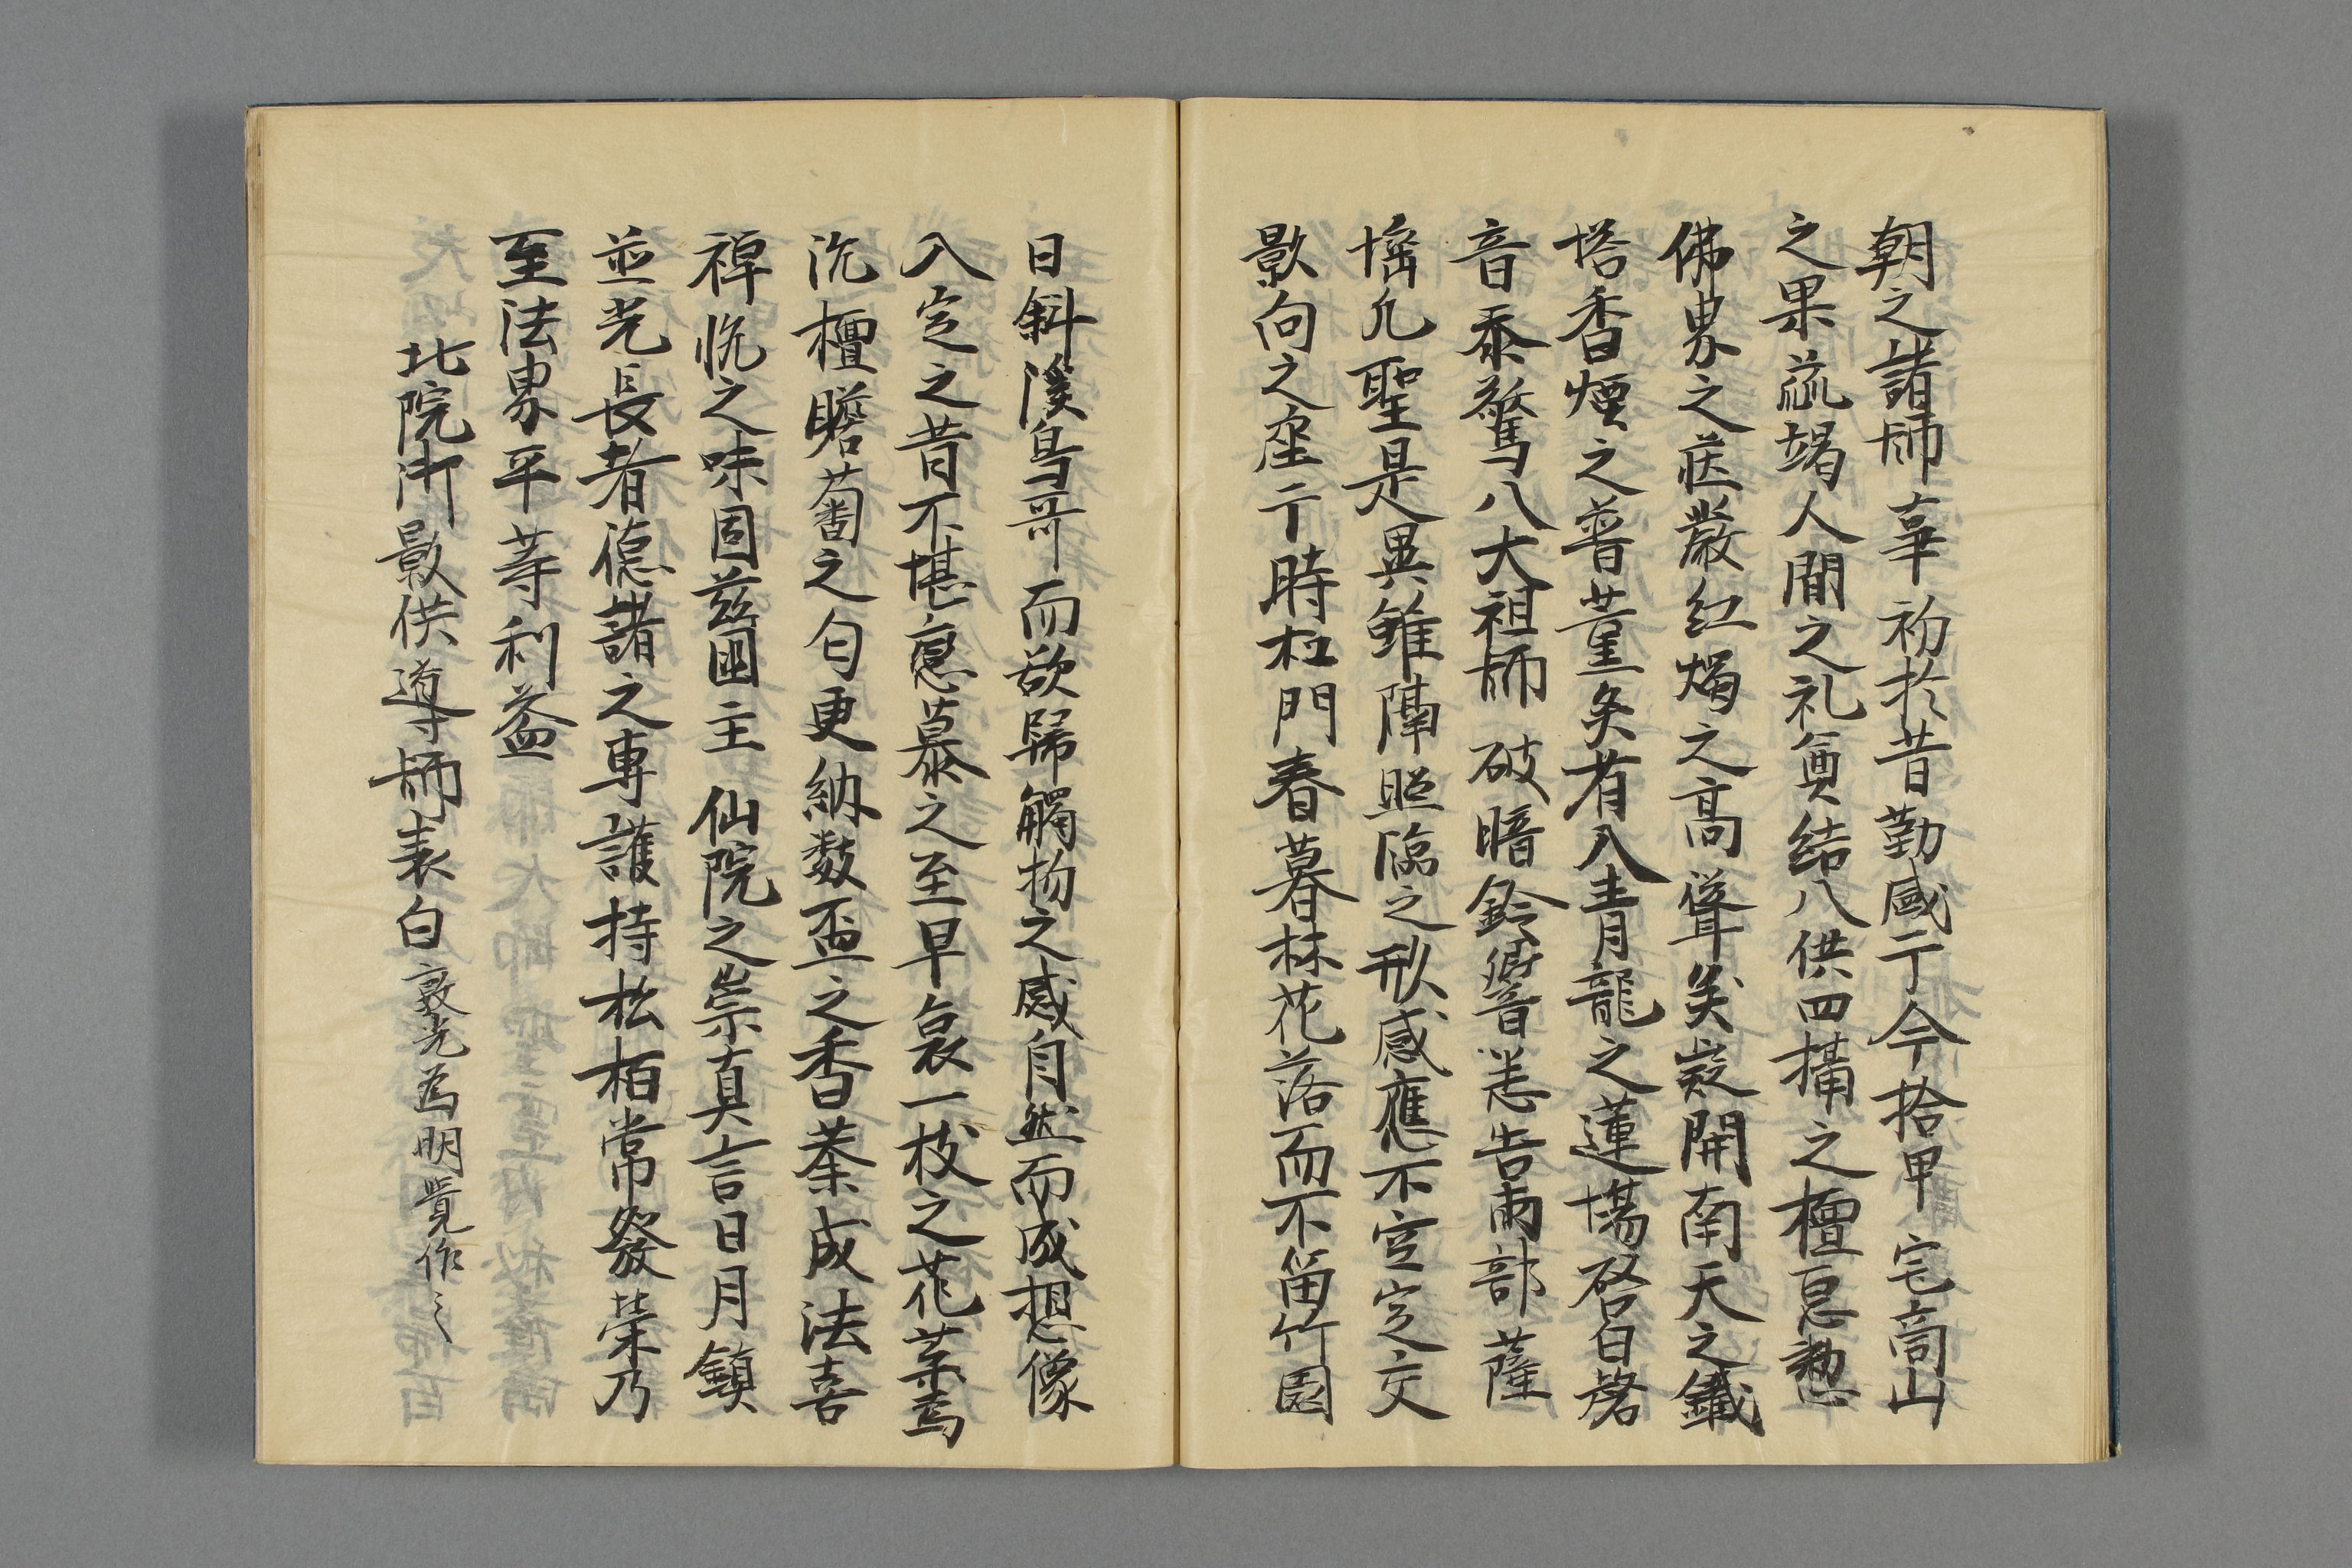 朝之諸師事初於昔勤盛于今拾甲宅高山
之果蓏竭人間之礼奠結八供四攝之檀慇懃
佛界之莊嚴紅燭之高聳矣疑開南天之鐵
塔香煙之普薫矣有入青龍之蓮場啓白磬
音忝驚八大祖師破暗鈴響恙告両部薩
埵凡聖是異雖隔照臨之形感應不空定交
影向之座于時杜門春暮林花落而不留竹園
日斜溪鳥哥而欲歸觸物之感自然而成想像
入定之昔不堪戀慕之至早哀一枝之花菜焉
沉檀瞻蔔之匂更納数盃之香藥成法喜
禅悦之味固茲国主仙院之崇真言日月鎮
並光長者德諸之専護持松栢常發榮乃
至法界平等利益
北院御影供導師表白敦光為明覺作之